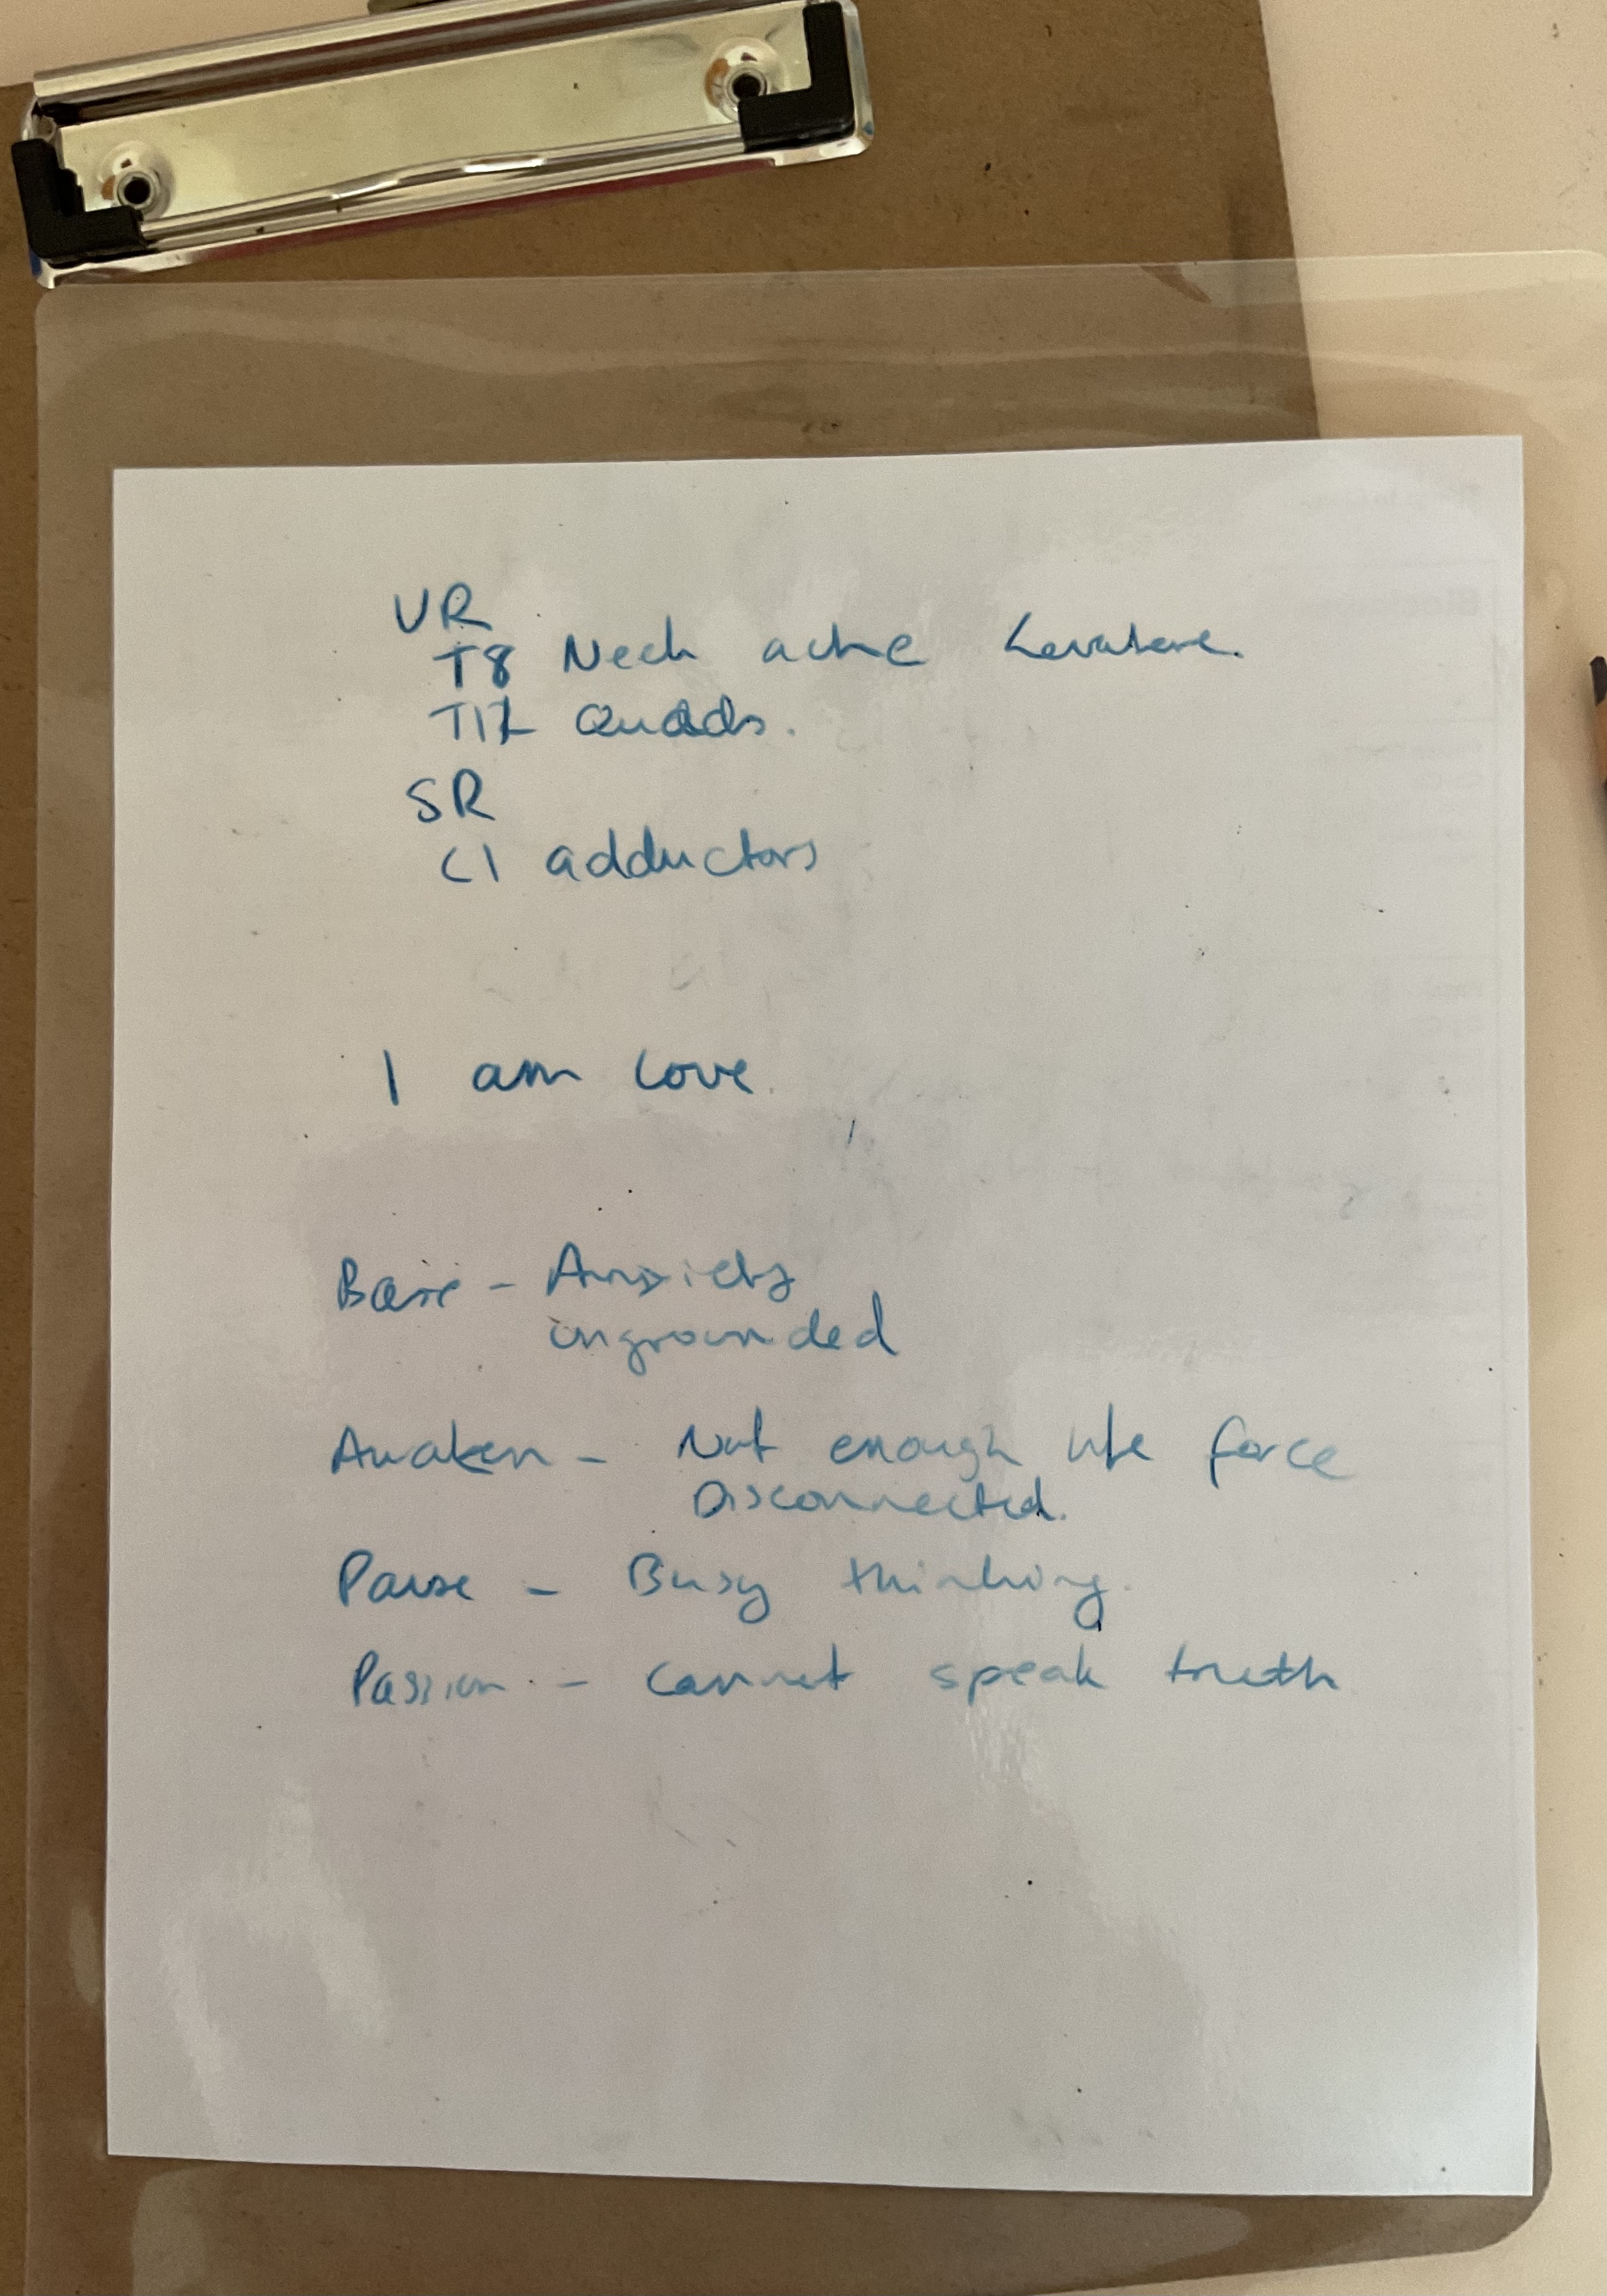 VR
T8 Neck ache
T12 Quads.
SR
C1 adductors
I am love.
Base - Anxiety
ungrounded
Awaken - Not enough life force
Disconnected.
Pause - Busy thinking.
Passion - Cannot speak truth